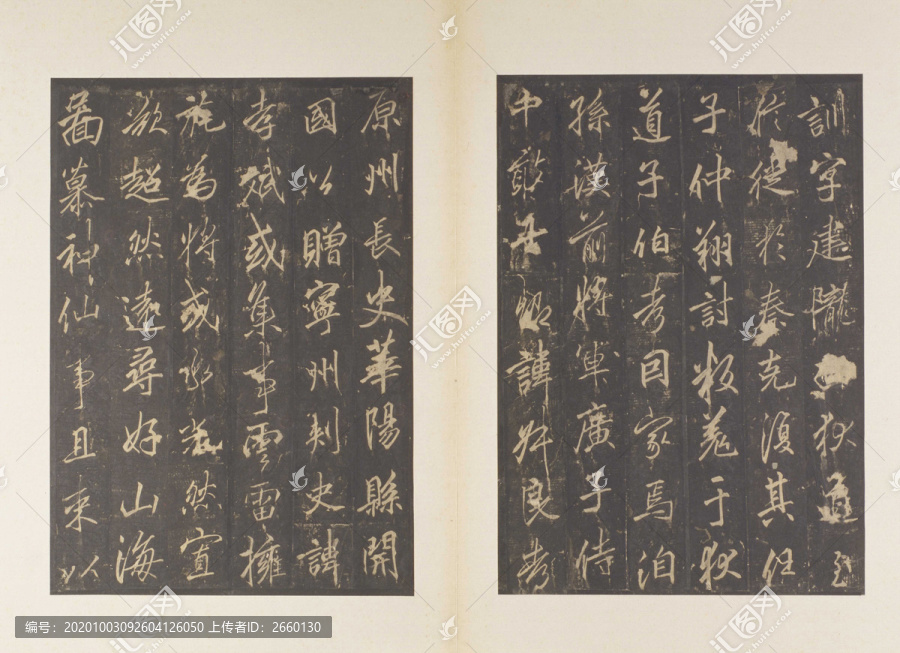 訓字建隴狄道至
於從於秦克復其任
子仲翔討叛羌于狄
道子伯考因家焉洎
孫漢前將軍廣子侍
中敢諱叔良考
原州長史華陽縣開
國公贈寧州刺史諱
孝斌或集事雲雷擁
旄為將或然宣
欲超然遠尋好山海
圖慕神仙事且束以
汇图网
www.huitu.com
编号：20201003092604126050 上传者ID：2660130